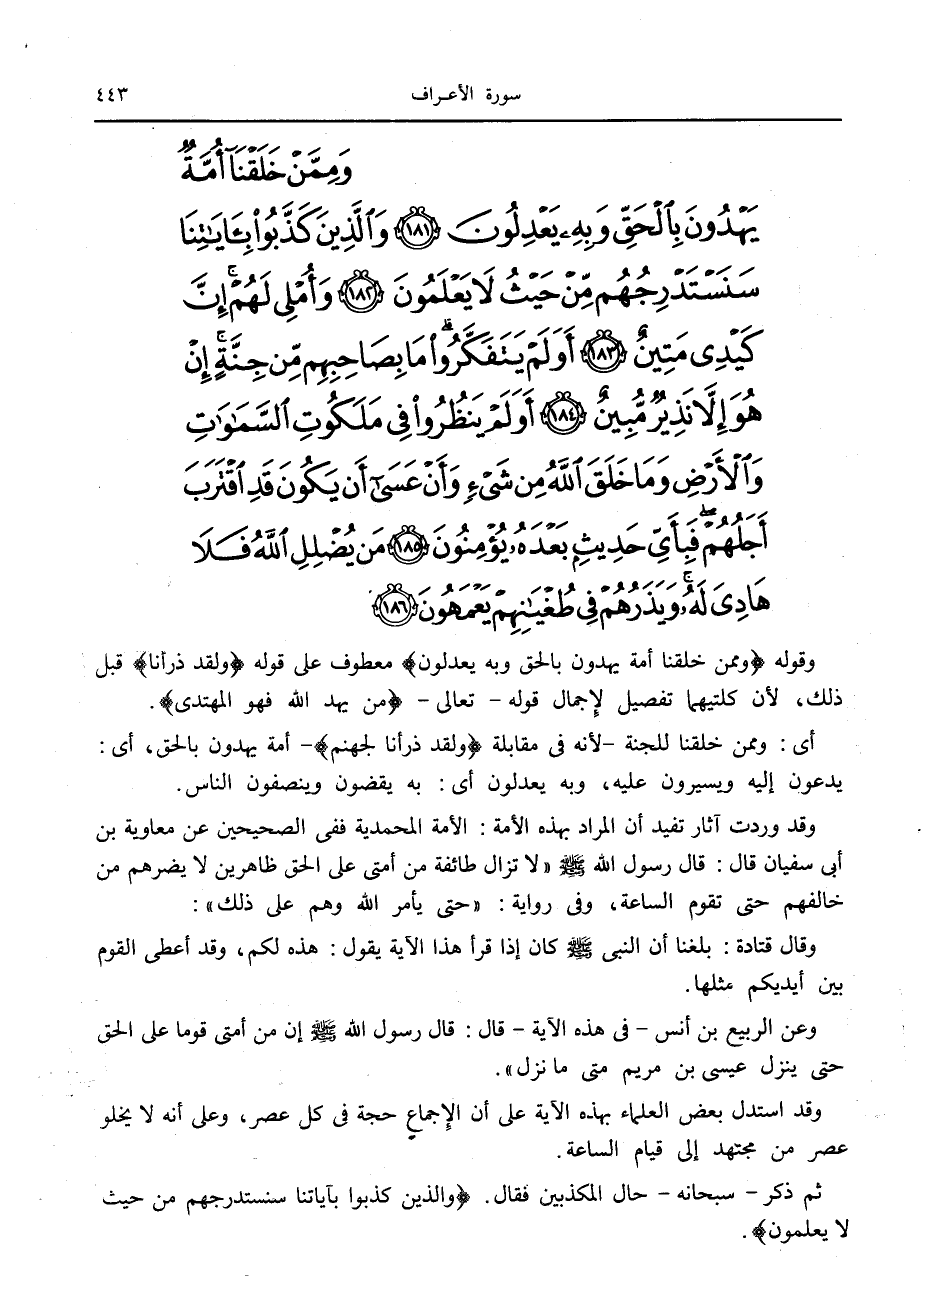 سورة الأعراف ٤٤٣
وَمِمَّنْ خَلَقْنَآ أُمَّةٌ
يَهْدُونَ بِالْحَقِّ وَبِهِۦ يَعْدِلُونَ ١٨١ وَٱلَّذِينَ كَذَّبُوا۟ بِـَٔايَـٰتِنَا
سَنَسْتَدْرِجُهُم مِّنْ حَيْثُ لَا يَعْلَمُونَ ١٨٢ وَأُمْلِى لَهُمْ ۚ إِنَّ
كَيْدِى مَتِينٌ ١٨٣ أَوَلَمْ يَتَفَكَّرُوا۟ ۗ مَا بِصَاحِبِهِم مِّن جِنَّةٍ ۚ إِنْ
هُوَ إِلَّا نَذِيرٌ مُّبِينٌ ١٨٤ أَوَلَمْ يَنظُرُوا۟ فِى مَلَكُوتِ ٱلسَّمَـٰوَٰتِ
وَٱلْأَرْضِ وَمَا خَلَقَ ٱللَّهُ مِن شَىْءٍ وَأَنْ عَسَىٰٓ أَن يَكُونَ قَدِ ٱقْتَرَبَ
أَجَلُهُمْ ۖ فَبِأَىِّ حَدِيثٍۭ بَعْدَهُۥ يُؤْمِنُونَ ١٨٥ مَن يُضْلِلِ ٱللَّهُ فَلَا
هَادِىَ لَهُۥ ۚ وَيَذَرُهُمْ فِى طُغْيَـٰنِهِمْ يَعْمَهُونَ ١٨٦
وقوله ﴿وممن خلقنا أمة يهدون بالحق وبه يعدلون﴾ معطوف على قوله ﴿ولقد ذرأنا﴾ قبل
ذلك، لأن كلتيهما تفصيل لإجمال قوله - تعالى - ﴿من يهد الله فهو المهتدى﴾.
أى : وممن خلقنا للجنة -لأنه فى مقابلة ﴿ولقد ذرأنا لجهنم﴾- أمة يهدون بالحق، أى :
يدعون إليه ويسيرون عليه، وبه يعدلون أى : به يقضون وينصفون الناس.
وقد وردت آثار تفيد أن المراد بهذه الأمة : الأمة المحمدية ففى الصحيحين عن معاوية بن
أبى سفيان قال : قال رسول الله ﷺ «لا تزال طائفة من أمتى على الحق ظاهرين لا يضرهم من
خالفهم حتى تقوم الساعة، وفى رواية : «حتى يأمر الله وهم على ذلك» :
وقال قتادة : بلغنا أن النبى ﷺ كان إذا قرأ هذا الآية يقول : هذه لكم، وقد أعطى القوم
بين أيديكم مثلها.
وعن الربيع بن أنس - فى هذه الآية - قال : قال رسول الله ﷺ إن من أمتى قوما على الحق
حتى ينزل عيسى بن مريم متى ما نزل».
وقد استدل بعض العلماء بهذه الآية على أن الإجماع حجة فى كل عصر، وعلى أنه لا يخلو
عصر من مجتهد إلى قيام الساعة.
ثم ذكر - سبحانه - حال المكذبين فقال. ﴿والذين كذبوا بآياتنا سنستدرجهم من حيث
لا يعلمون﴾.